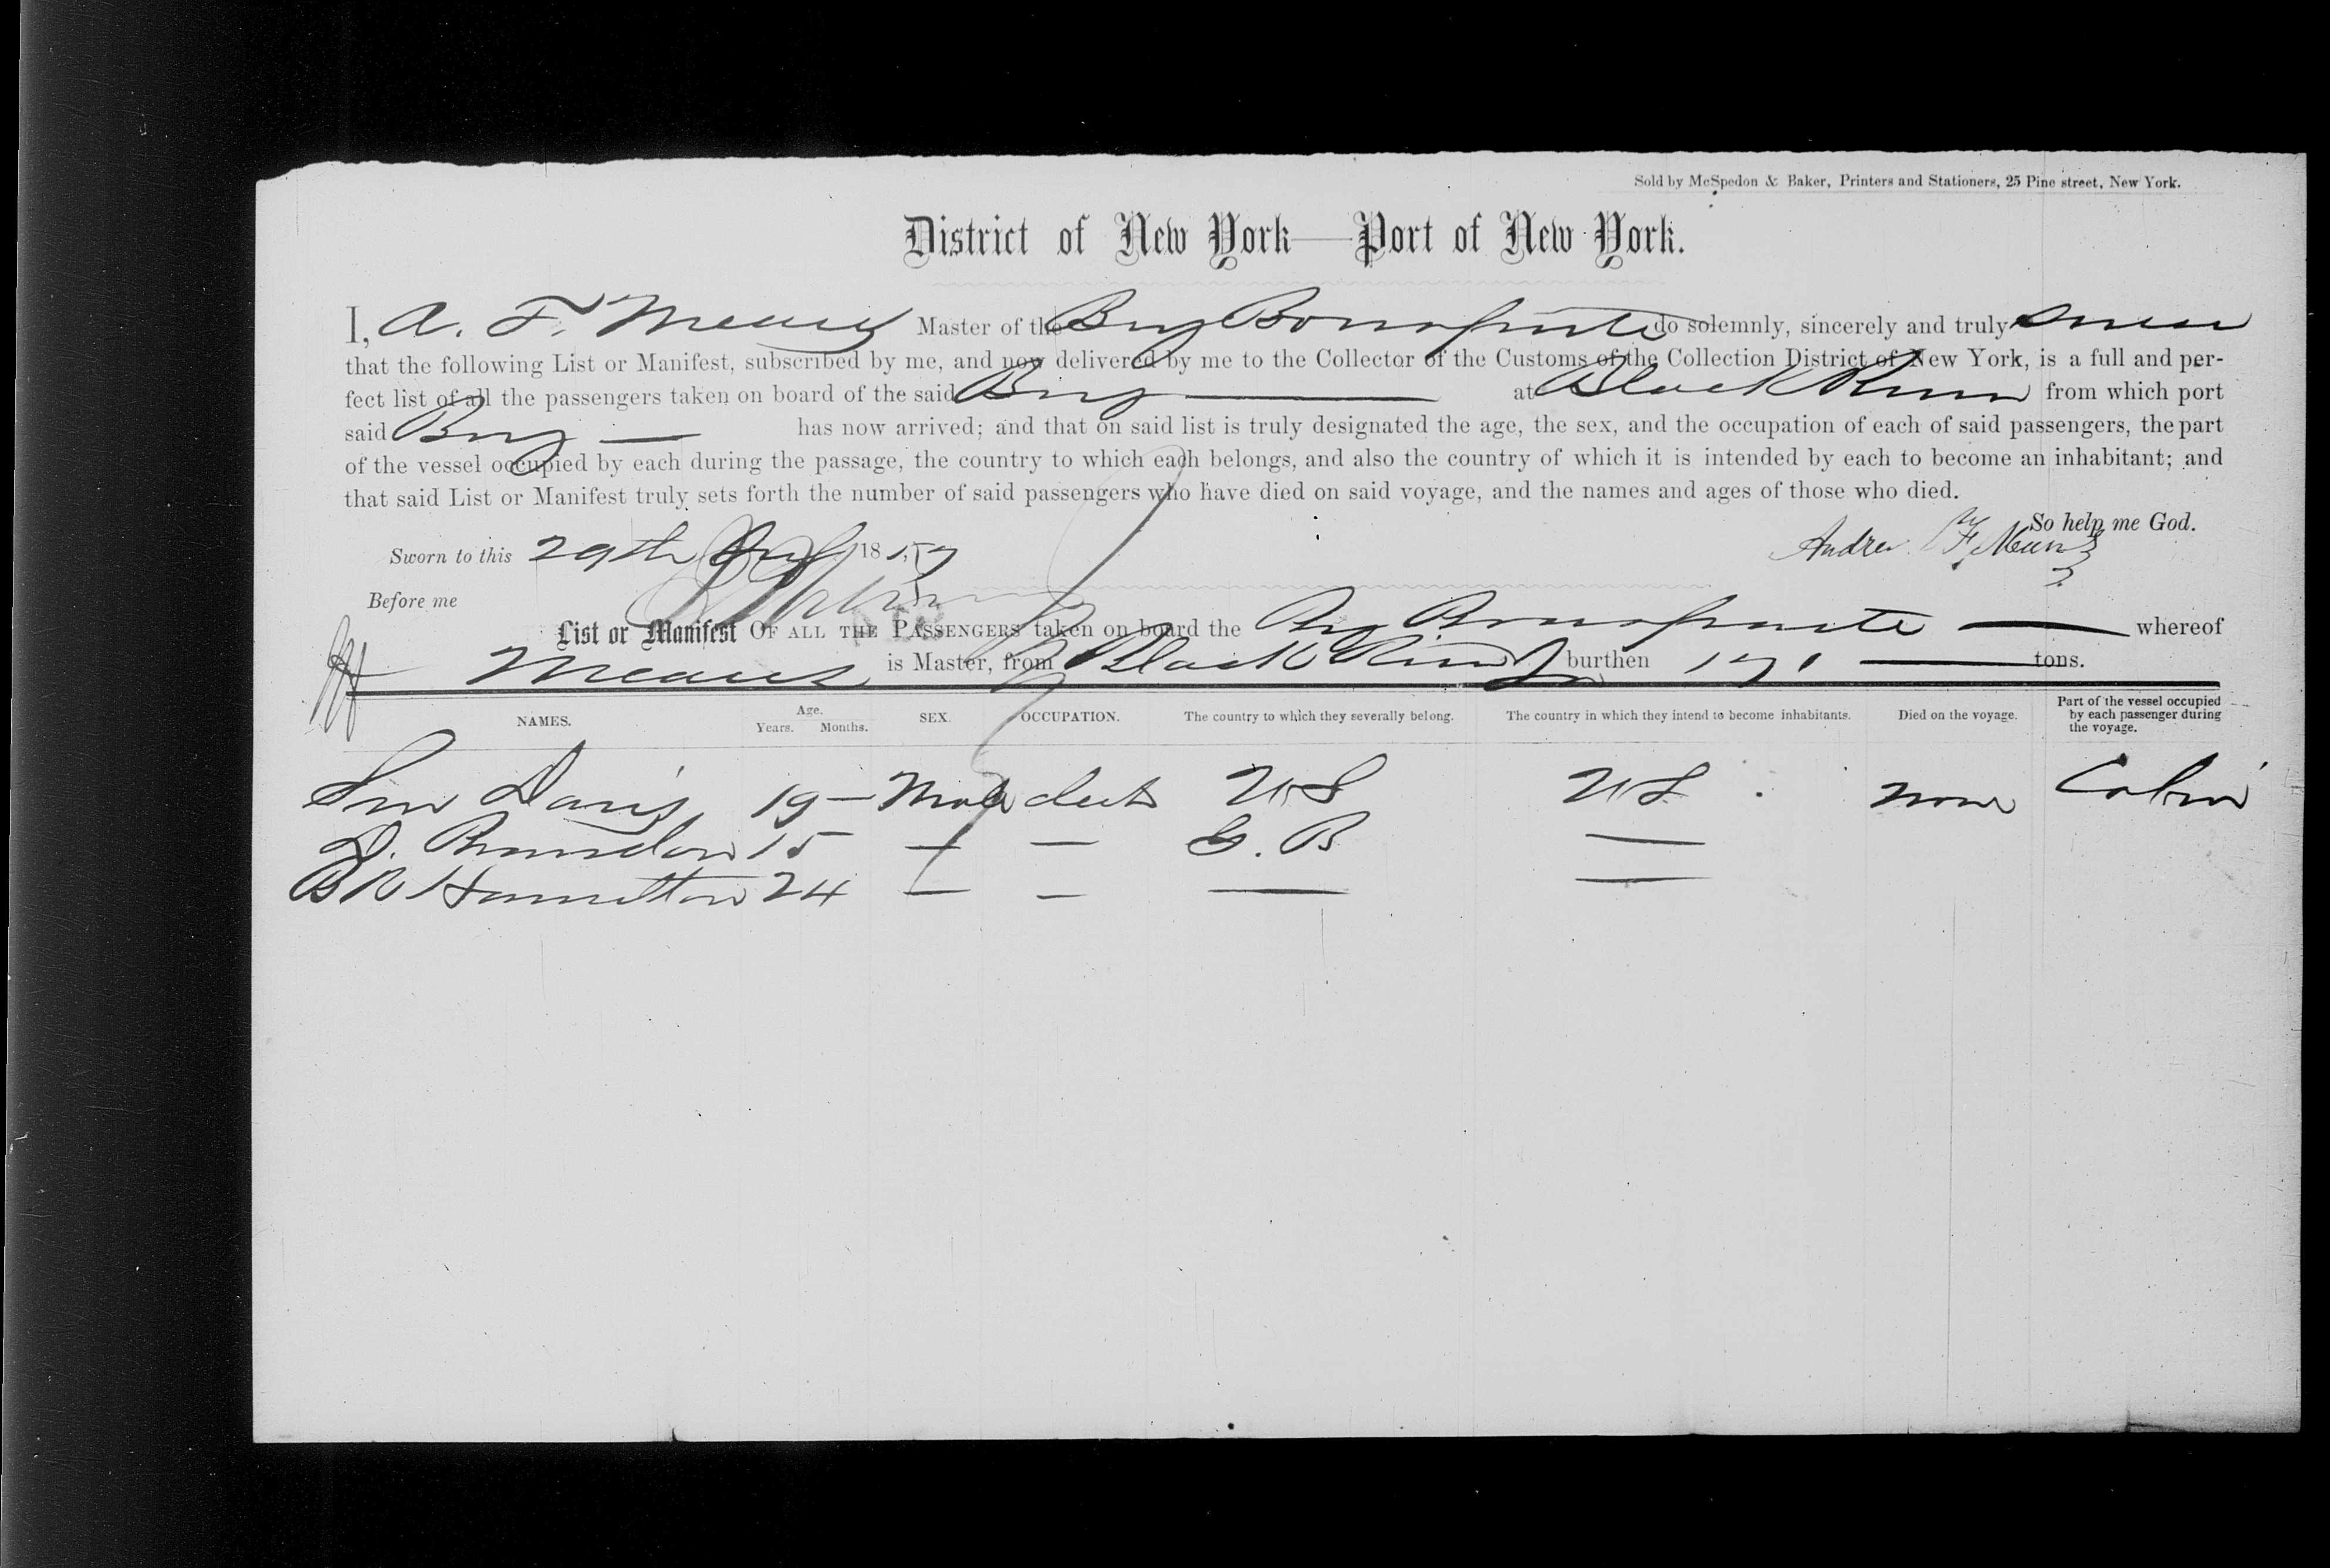 Sold by McSpedon & Baker, Printers and Stationers, 25 Pine street, New York.
District of New York—Port of New York.
I, A. F. Means Master of the Brig Bonaparte do solemnly, sincerely and truly swear
that the following List or Manifest, subscribed by me, and now delivered by me to the Collector of the Customs of the Collection District of New York, is a full and per-
fect list of all the passengers taken on board of the said Brig — at Black River from which port
said Brig — has now arrived; and that on said list is truly designated the age, the sex, and the occupation of each of said passengers, the part
of the vessel occupied by each during the passage, the country to which each belongs, and also the country of which it is intended by each to become an inhabitant; and
that said List or Manifest truly sets forth the number of said passengers who have died on said voyage, and the names and ages of those who died.
So help me God.
Sworn to this 29th 1857 Andrew F. Means
Before me
List or Manifest OF ALL THE PASSENGERS taken on board the Brig Bonaparte — whereof
Means is Master, from Black River Ja burthen 171 — tons.
NAMES. Age. Years. Months. SEX. OCCUPATION. The country to which they severally belong. The country in which they intend to become inhabitants. Died on the voyage. Part of the vessel occupied by each passenger during the voyage.
Davis 19 — Male US US none Cabin
Brandon 15 — — G. B —
B R Hamilton 24 — — — —